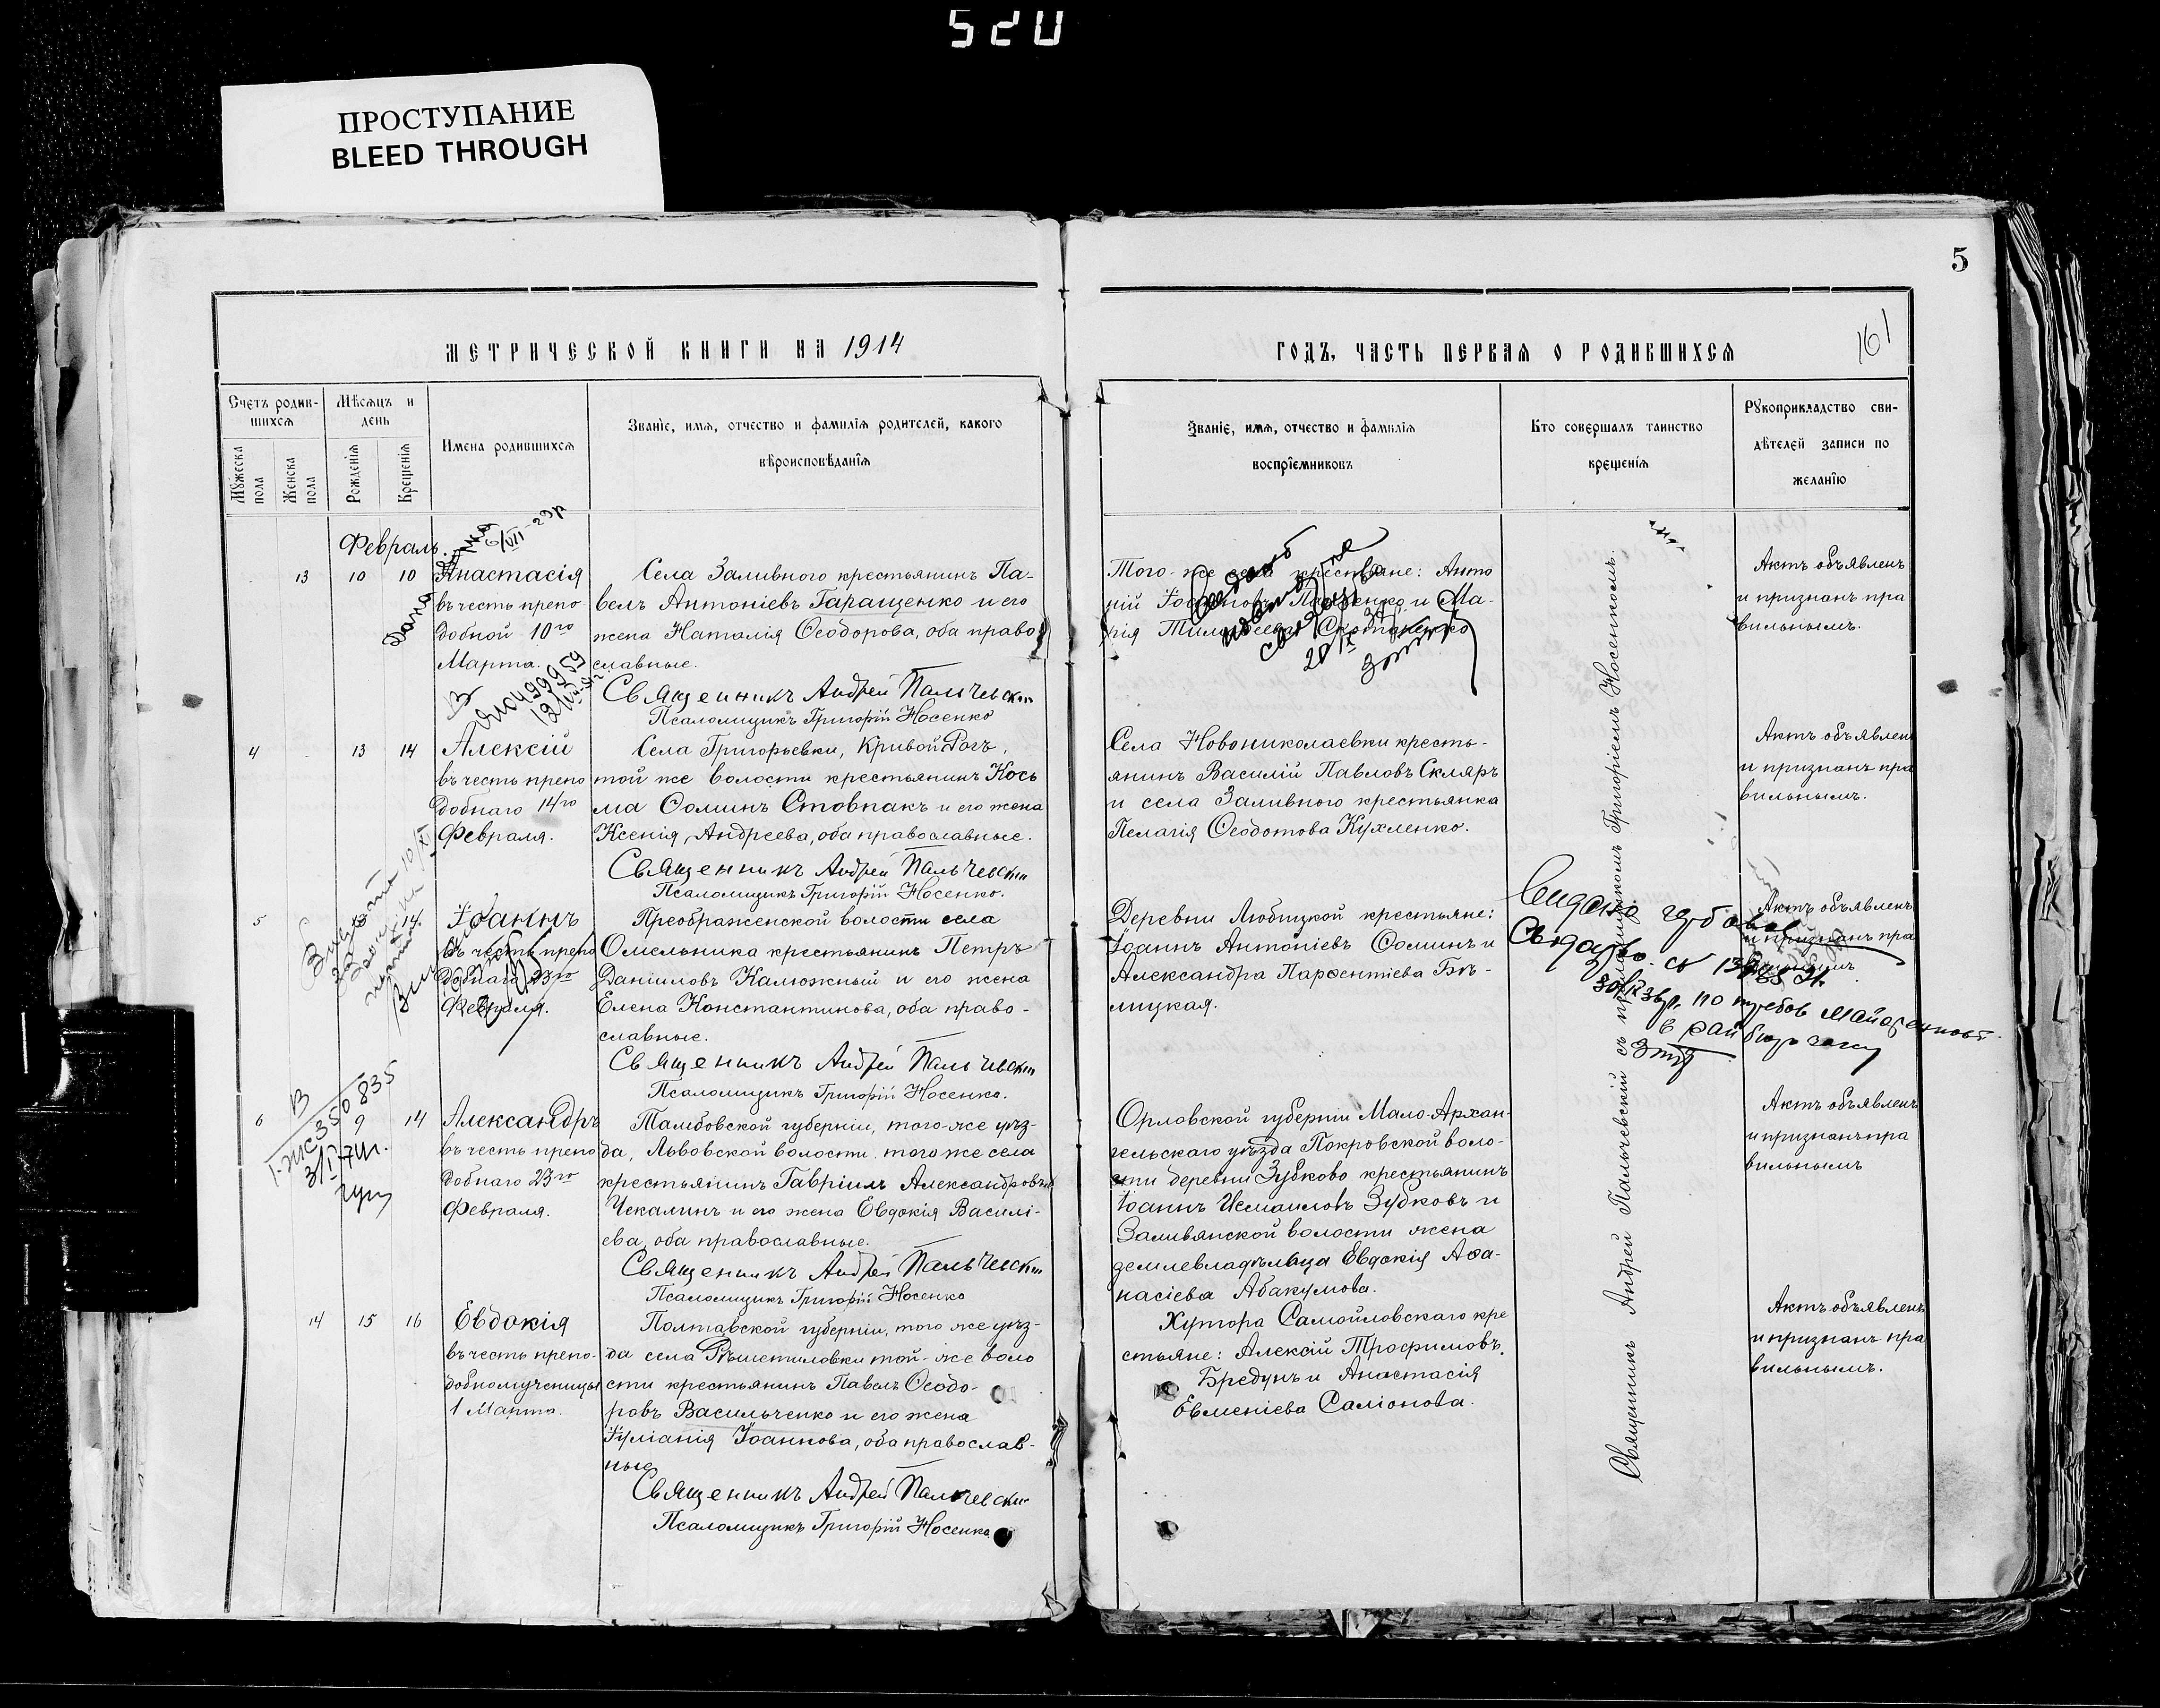 520
ПРОСТУПАНИЕ
BLEED THROUGH
5
161
МЕТРИЧЕСКОЙ КНИГИ НА 1914
ГОДЪ, ЧАСТЬ ПЕРВАЯ О РОДИВШИХСЯ
Счетъ родив-
шихся
Мѣсяцъ и
день
Мужеска
пола
Женска
пола
Рожденія
Крещенія
Имена родившихся
Званіе, имя, отчество и фамилія родителей, какого
вѣроисповѣданія
Званіе, имя, отчество и фамилія
воспріемниковъ
Кто совершалъ таинство
крещенія
Рукоприкладство сви-
дѣтелей записи по
желанію
Февраль.
13 10 10
Анастасія
въ честь препо
добной 10го
Марта.
Села Заливного крестьянинъ Па-
велъ Антоніевъ Гаращенко и его
жена Наталія Ѳеодорова, оба право
славные.
Священникъ Андрей Пальчевскій
Псаломщикъ Григорій Носенко
Того-же села крестьяне: Анто
ній и Ма-
рія
Актъ объявленъ
и признанъ пра
вильнымъ.
4 13 14
Алексій
въ честь препо
добнаго 14го
Февраля.
Села Григорьевки, Кривой Рогъ,
той же волости крестьянинъ Кось
ма Ѳоминъ Стовпакъ и его жена
Ксенія Андреева, оба православные.
Священникъ Андрей Пальчевскій
Псаломщикъ Григорій Носенко.
Села Новониколаевки кресть-
янинъ Василій Павловъ Скляръ
и села Заливного крестьянка
Пелагія Ѳеодотова Кухленко.
Актъ объявленъ
и признанъ пра
вильнымъ.
5 14
Іоаннъ
въ честь препо
добнаго 23го
Февраля.
Преображенской волости села
Омельника крестьянинъ Петръ
Даніиловъ Калюжный и его жена
Елена Константинова, оба право-
славные.
Священникъ Андрей Пальчевскій
Псаломщикъ Григорій Носенко.
Деревни Любицкой крестьяне:
Іоаннъ Антоніевъ Ѳоминъ и
Александра Парѳентіева Бѣ-
лицкая.
Актъ объявленъ
и признанъ пра
вильнымъ
6 9 14
Александръ
въ честь препо
добнаго 23го
Февраля.
Тамбовской губерніи, того-же уѣз-
да, Львовской волости, того же села
крестьянинъ Гавріилъ Александровъ
Чекалинъ и его жена Евдокія Василі-
ева, оба православные.
Священникъ Андрей Пальчевскій
Псаломщикъ Григорій Носенко
Орловской губерніи Мало-Архан-
гельскаго уѣзда Покровской воло-
сти деревни Зубково крестьянинъ
Іоаннъ Исмаиловъ Зубковъ и
Заливянской волости жена
землевладѣльца Евдокія Аѳа-
насіева Абакумова.
Актъ объявленъ
и признанъ пра
вильнымъ
14 15 16
Евдокія
въ честь препо-
добномученицы
1 Марта.
Полтавской губерніи, того же уѣз-
да села Рѣшетиловки той-же воло
сти крестьянинъ Павелъ Ѳеодо-
ровъ Васильченко и его жена
Іуліанія Іоаннова, оба православ-
ные
Священникъ Андрей Пальчевскій
Псаломщикъ Григорій Носенко
Хутора Самойловскаго кре
стьяне: Алексій Трофимовъ
Бредунъ и Анастасія
Евменіева Саліонова.
Актъ объявленъ
и признанъ пра
вильнымъ.
Священникъ Андрей Пальчевскій съ псаломщикомъ Григоріемъ Носенкомъ.